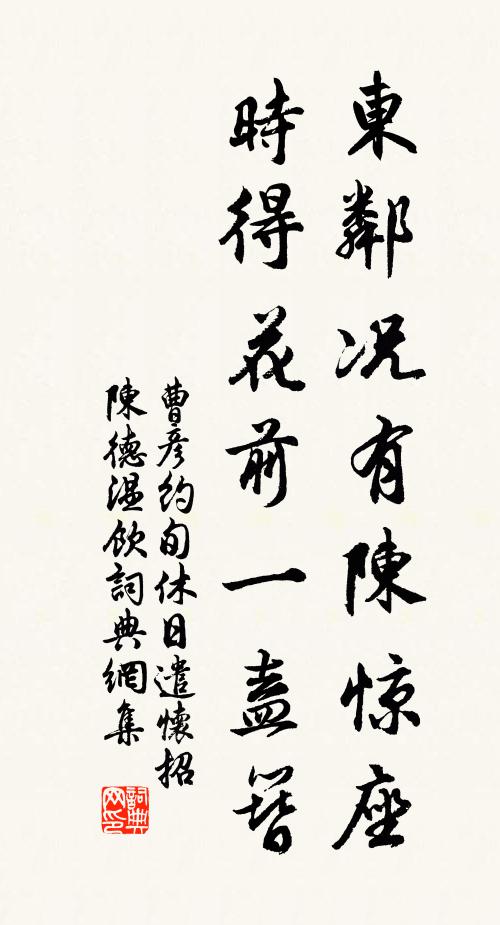 東鄰况有陳惊座
時得花前一盍簪
曹彦約旬休日遣懷招
陳德湿飲詞典網集
詞典
网印